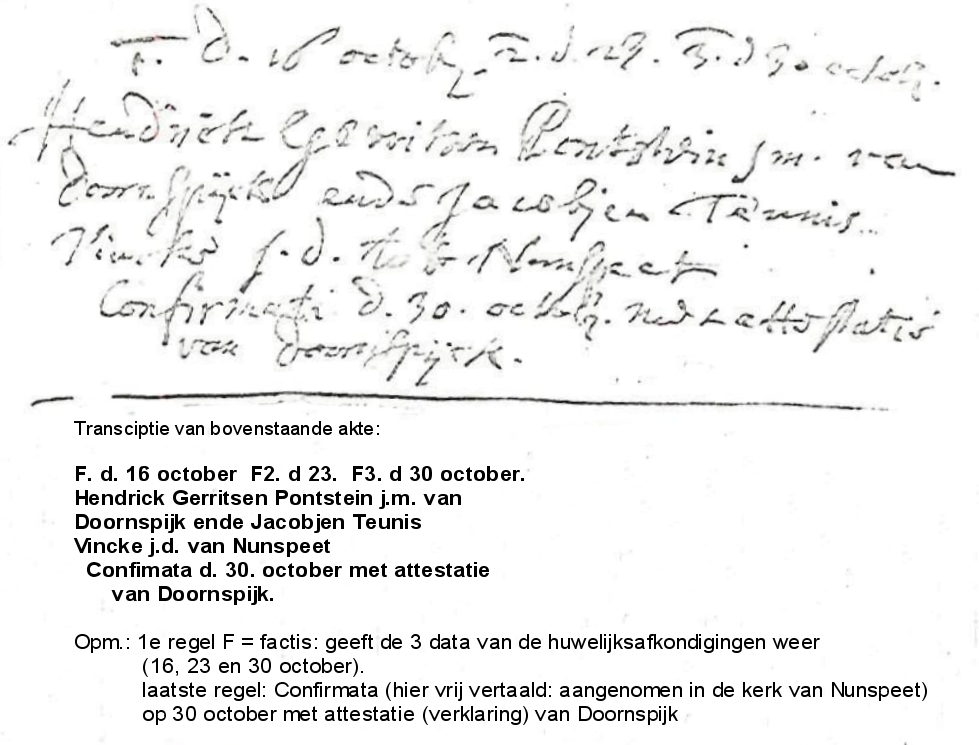 F. d. 16 octob. 2. d. 23. 3. d 30 octob.
Hendrick Gerritsen Pontstein j m. van
doornspijck ende Jacobjen Teunis
Vincke j. d. tot Nunspeet
Confirmati d. 30. octob. met attestatis
van doornspijck.
Transciptie van bovenstaande akte:
F. d. 16 october F2. d 23. F3. d 30 october.
Hendrick Gerritsen Pontstein j.m. van
Doornspijk ende Jacobjen Teunis
Vincke j.d. van Nunspeet
Confimata d. 30. october met attestatie
van Doornspijk.
Opm.: 1e regel F = factis: geeft de 3 data van de huwelijksafkondigingen weer
(16, 23 en 30 october).
laatste regel: Confirmata (hier vrij vertaald: aangenomen in de kerk van Nunspeet)
op 30 october met attestatie (verklaring) van Doornspijk